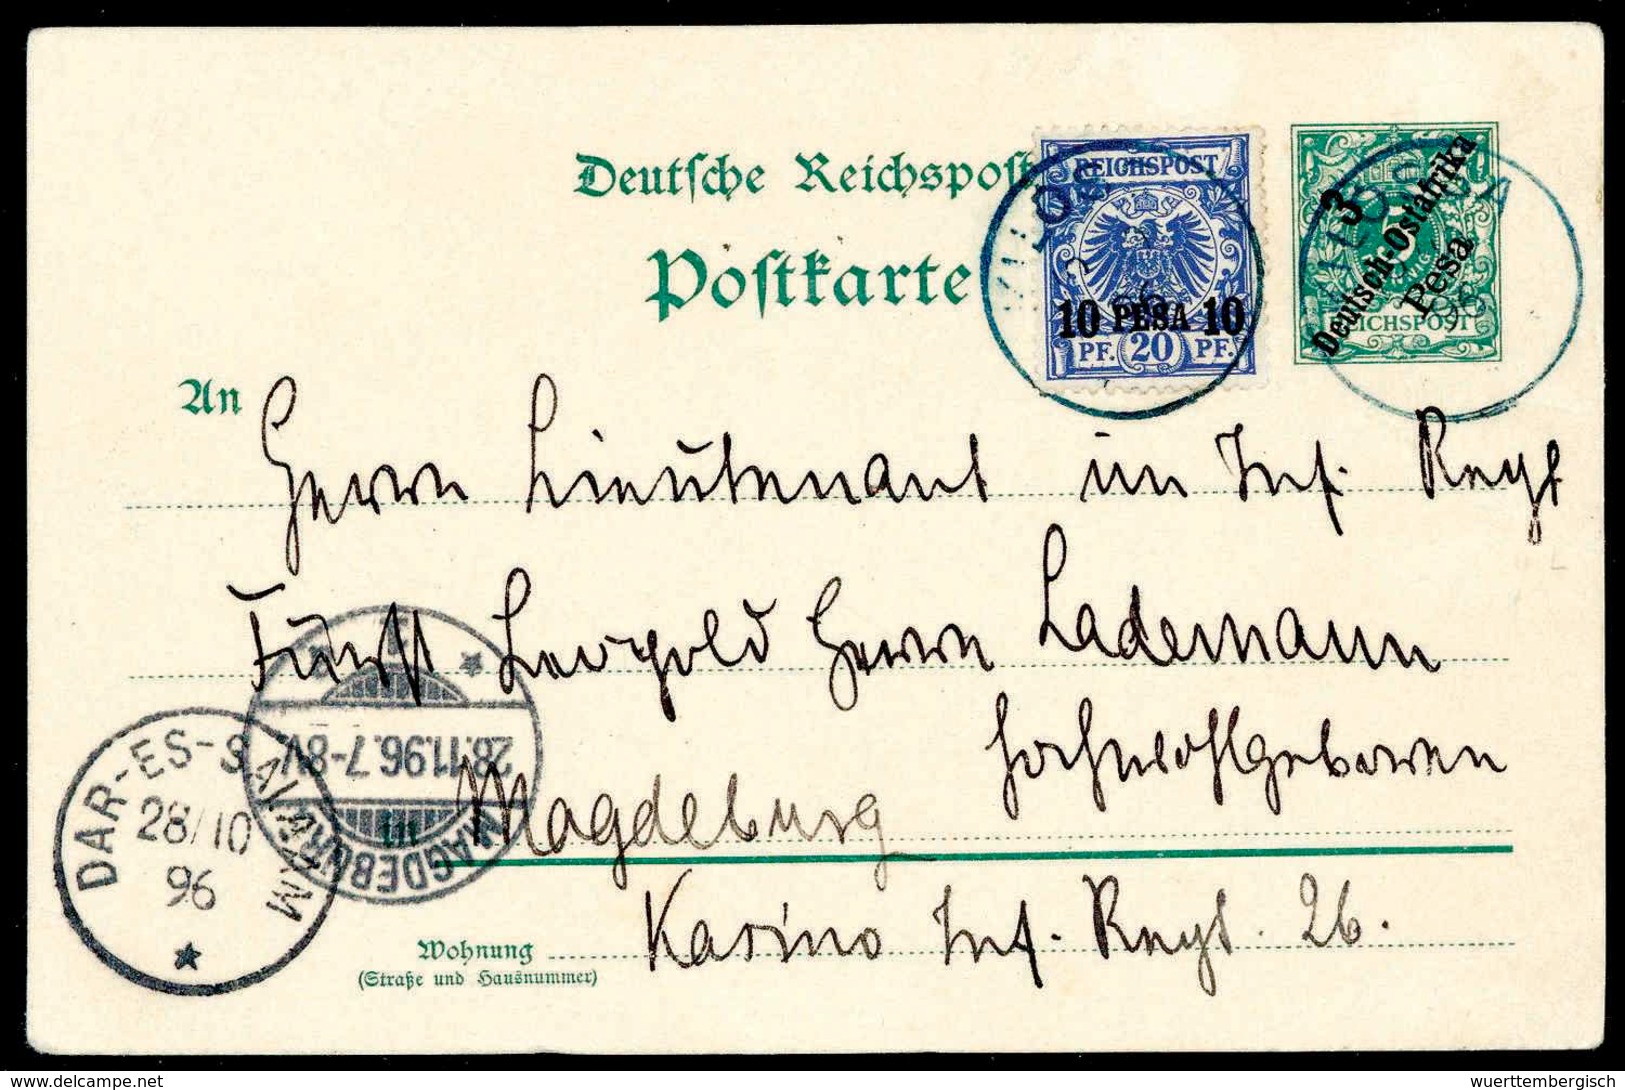 Deutsche Reichspost
Postkarte
REICHSPOST
10 PESA 10
PF. 20 PF.
3
Deutsch-Ostafrika
Pesa
REICHSPOST
96
An
Herrn Lieutenant im Inf. Regt
Fürst Leopold Herrn Lademann
Hochwohlgeboren
in
Magdeburg
Kasino Inf. Regt. 26.
Wohnung
(Straße und Hausnummer)
MAGDEBURG
28.11.96.7-8V.
DAR-ES-SALAAM
28/10
96
www.delcampe.net
wuerttembergisch